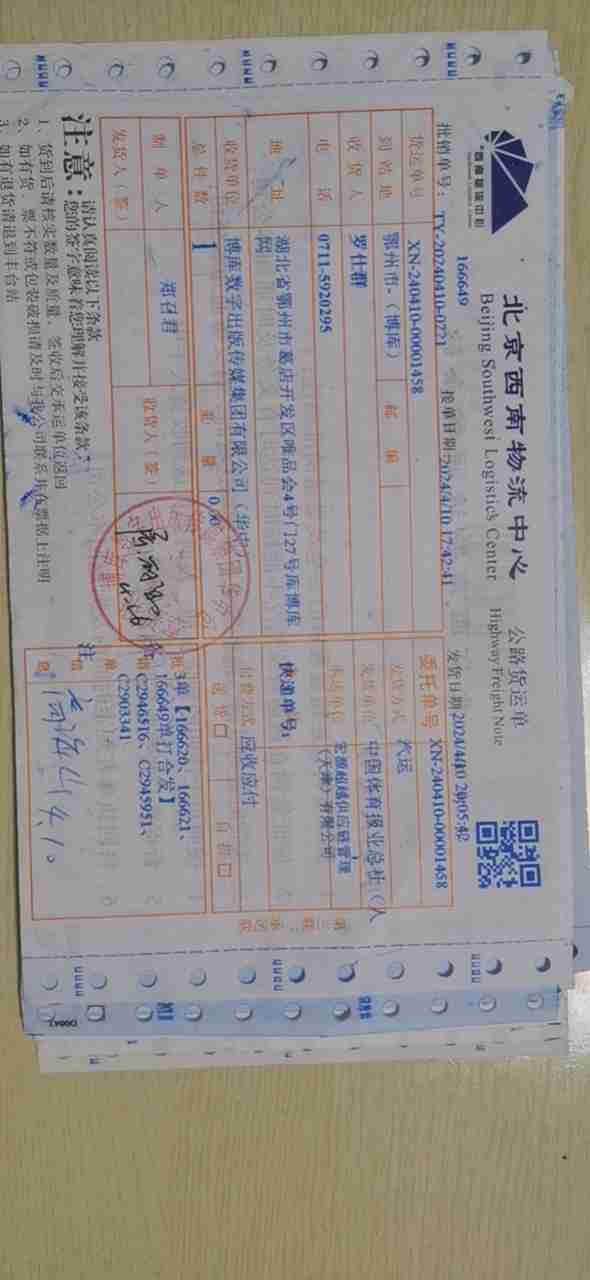 西南物流中心
北京西南物流中心
Beijing Southwest Logistics Center
公路货运单
Highway Freight Note
166649
批销单号: TY-20240410-0221 接单日期:2024/4/10 17:42:41 发货日期 2024/4/10 20:05:42
货运单号 XN-240410-00001458 委托单号 XN-240410-00001458
到站地 鄂州市-（博库） 邮编 发货方式 汽运
收货人 罗仕群 发货单位 中国体育报业总社（人
电话 0711-5920295 承运单位 宏源超越供应链管理（天津）有限公司
地址 湖北省鄂州市葛店开发区唯品会4号门27号库博库网 快递单号:
收货单位 博库数字出版传媒集团有限公司（华中） 付费方式 应收应付
总件数 1 重量 0.00 送货□ 自提□
制单人 郑召君 收货人（签）
发货人（签）
备注
3单【166620、166621、
166649单打合发】
C2946516、C2945951、
C2903341
4.10
注意:
请认真阅读以下条款
您的签字意味着您理解并接受该条款.
1、货到后请核实数量及质量，签收后交承运单位返回
2、如有货、票不符或包装破损请及时与我公司联系并在票据上注明
3、如有退货请退到丰台站